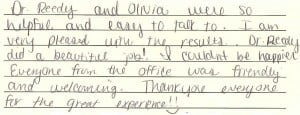 Dr. Reedy and Olivia were so
helpful and easy to talk to. I am
very pleased with the results. Dr. Reedy
did a beautiful job! I couldn't be happier
Everyone from the office was friendly
and welcoming. Thankyou everyone
for the great experience!!